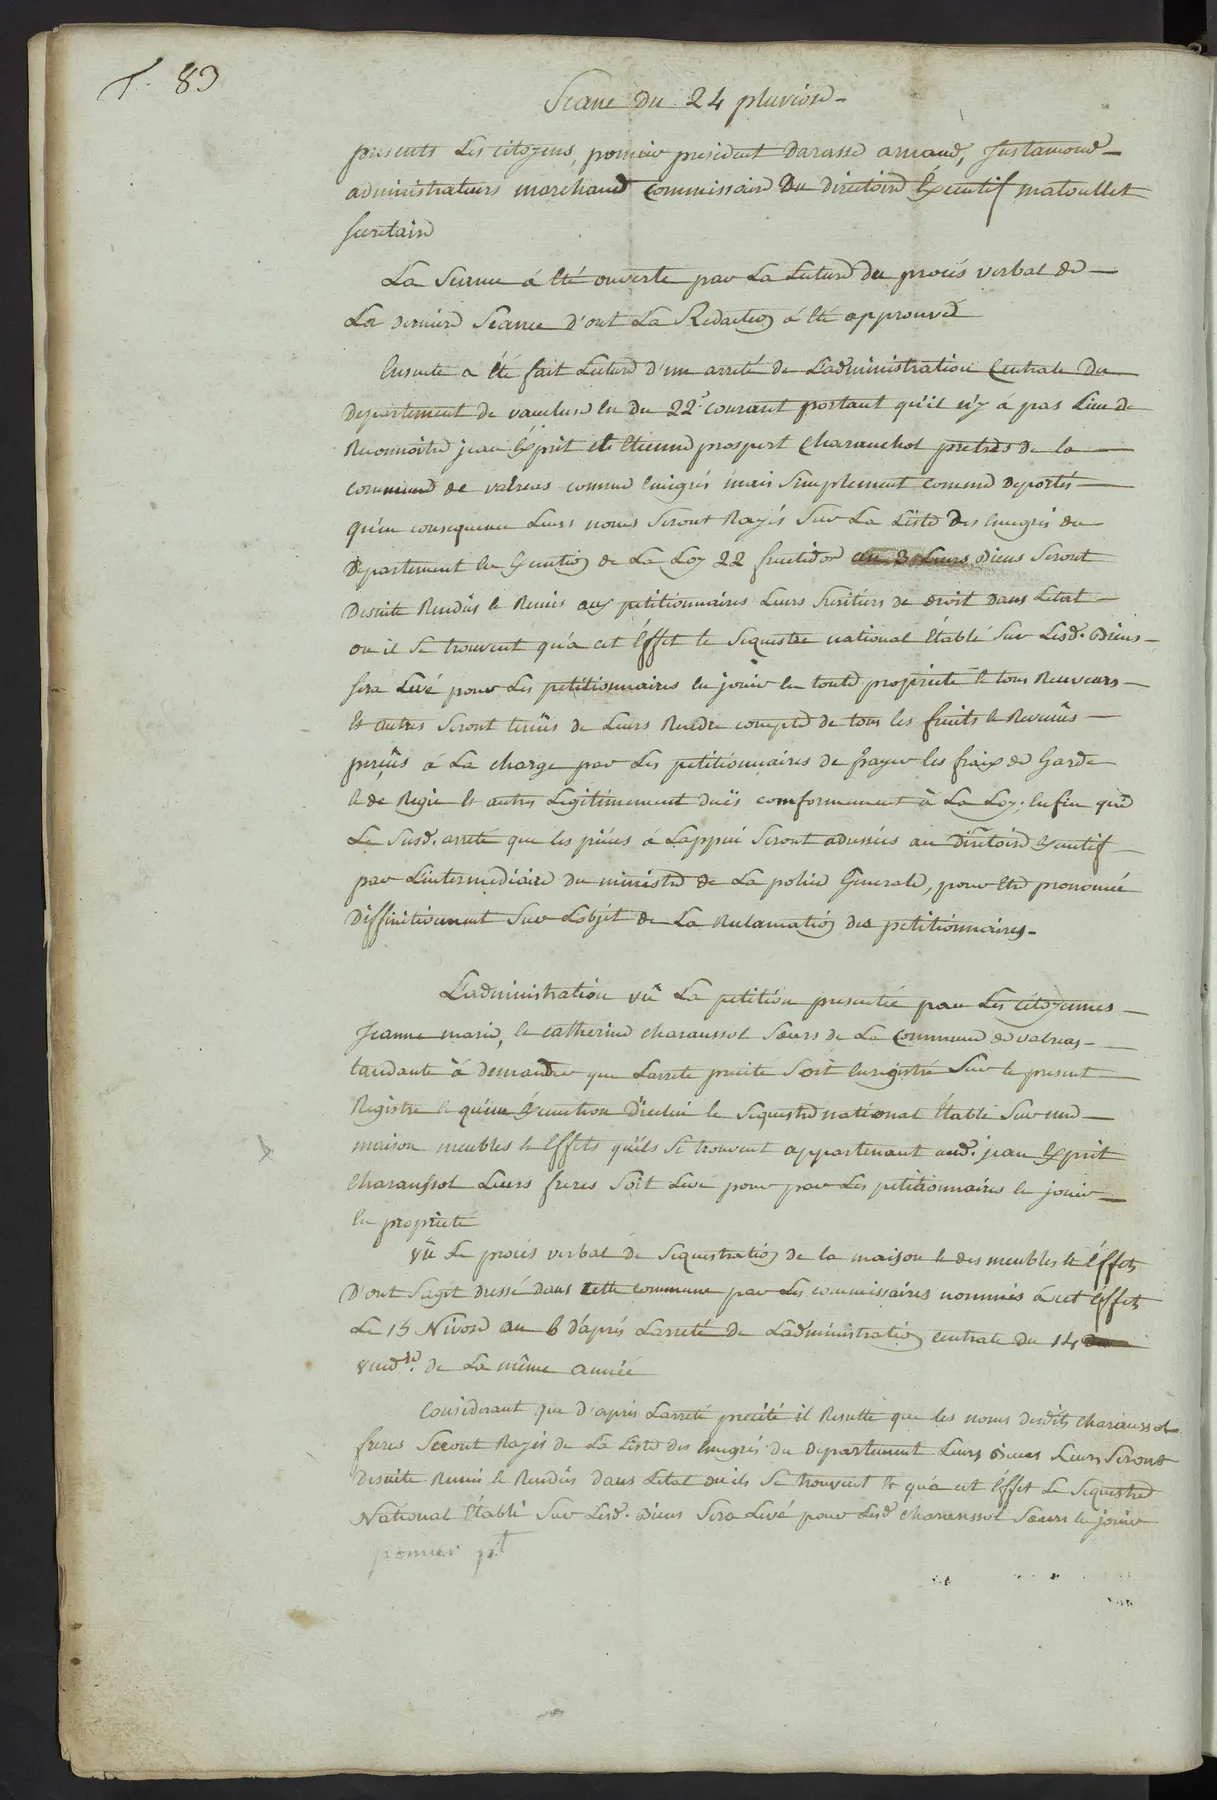 f. 83
Seance du 24 pluviose
presents Les citoyens, pomier president Darasse arnaud, Justamond
administrateurs marchand Commissaire Du Directoire Executif matoullet
secretaire
La Seance à Eté ouverte par La Lecture du procés verbal de
La derniere Seance d'ont La Redaction à Eté approuvée
Ensuite a Eté fait Lecture d'un arreté de L'administration Centrale Du
Departement de vaucluse en du 22e courant portant qu'il n'y á pas Lieu de
Reconnoitre jean Esprit et Etienne prospert Charauchol pretres de la
commune de valreas comme Emigrés mais Simplement comme deportés
qu'en consequence Leurs noms Seront Rayés Sur La Liste Des Emigrés du
Departement En Execution de La Loy 22 fructidor an 3 Leurs Biens Seront
Desuite Rendûs & Remis aux petitionnaires Leurs heritiers de droit dans L'etat
ou il Se trouvent qu'a cet Effet le Sequestre national Etabli Sur Lesd. Biens
Sera Levé pour Les petitionnaires en jouir en toute proprieté & tous Receveurs
Et autres Seront tenûs de Leurs Rendre compte de tous les fruits & Revenûs
perçûs á La charge par Les petitionnaires de payer les fraix de Garde
& de Regie Et autres Legitimement duës comformement à La Loy; Enfin que
Le Susd. arreté que les pieces á L'appui Seront adressées au Directoire Executif
par L'intermediaire du ministre de La police Generale, pour Etre prononcé
Diffinitivement Sur L'objet de La Reclamation des petitionnaires.
L'administration vû La petition presentée par Les Citoyennes
Jeanne marie, & catherine charaussol Sœurs de La Commune de valreas
tandante à demander que L'arrete precité Soit Enregistré Sur le present
Registre & qu'en Execution D'icelui le Sequestre national Etabli Sur une
maison meubles & Effets qu'ils Se trouvent appartenant aud. jean Esprit
Charaussol Leurs freres Soit Levé pour par Les petitionnaires En jouir
En proprieté
Vû Le procés verbal de Sequestration de la maison & des meubles & Effets
D'ont S'agit Dressé dans Cette commune par Les commissaires nommés à cet Effet
Le 15 Nivose an 6 d'aprés L'arreté de L'administration Centrale du 14
vend.re de La même année
Considerant que d'aprés L'arreté precité il Resulte que les noms desdits Charaussol
freres Seront Rayés de La Liste des Emigrés du departement Leurs Biens Leurs Seront
Desuite Remis & Rendûs dans L'etat ou ils Se trouvent & qu'a cet Effet Le Sequestre
National Etabli Sur Lesd. Biens Sera Levé pour Lesd. Charaussol Sœurs En jouir
pomier pt